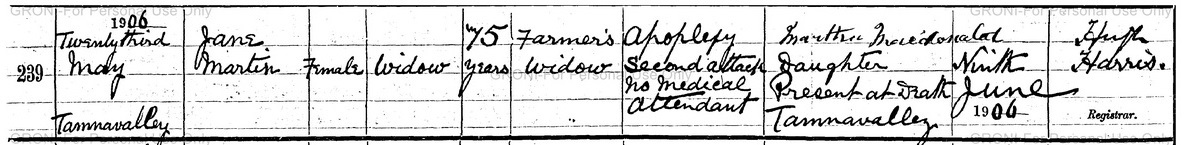 GRONI-For Personal Use Only
GRONI-For Personal Use Only
GRONI-For Personal Use Only
1906
Twenty third
May
Tamnavalley
239
Jane
Martin
Female
Widow
75
years
Farmer's
Widow
Apoplexy
Second attack
No Medical
Attendant
Martha Macdonald
Daughter
Present at Death
Tamnavalley.
Ninth
June
1906
Hugh
Harris.
Registrar.
GRONI-For Personal Use Only
GRONI-For Personal Use Only